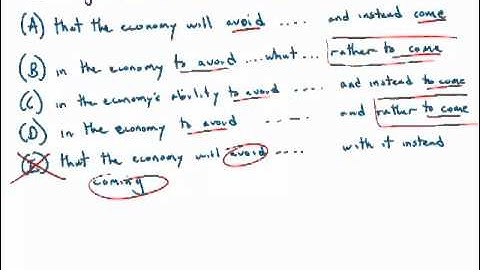 (A) that the economy will avoid .... and instead come
(B) in the economy to avoid ...what ... rather to come
(C) in the economy's ability to avoid .... and instead to come
(D) in the economy to avoid .... and rather to come
(E) that the economy will avoid .... with it instead
coming